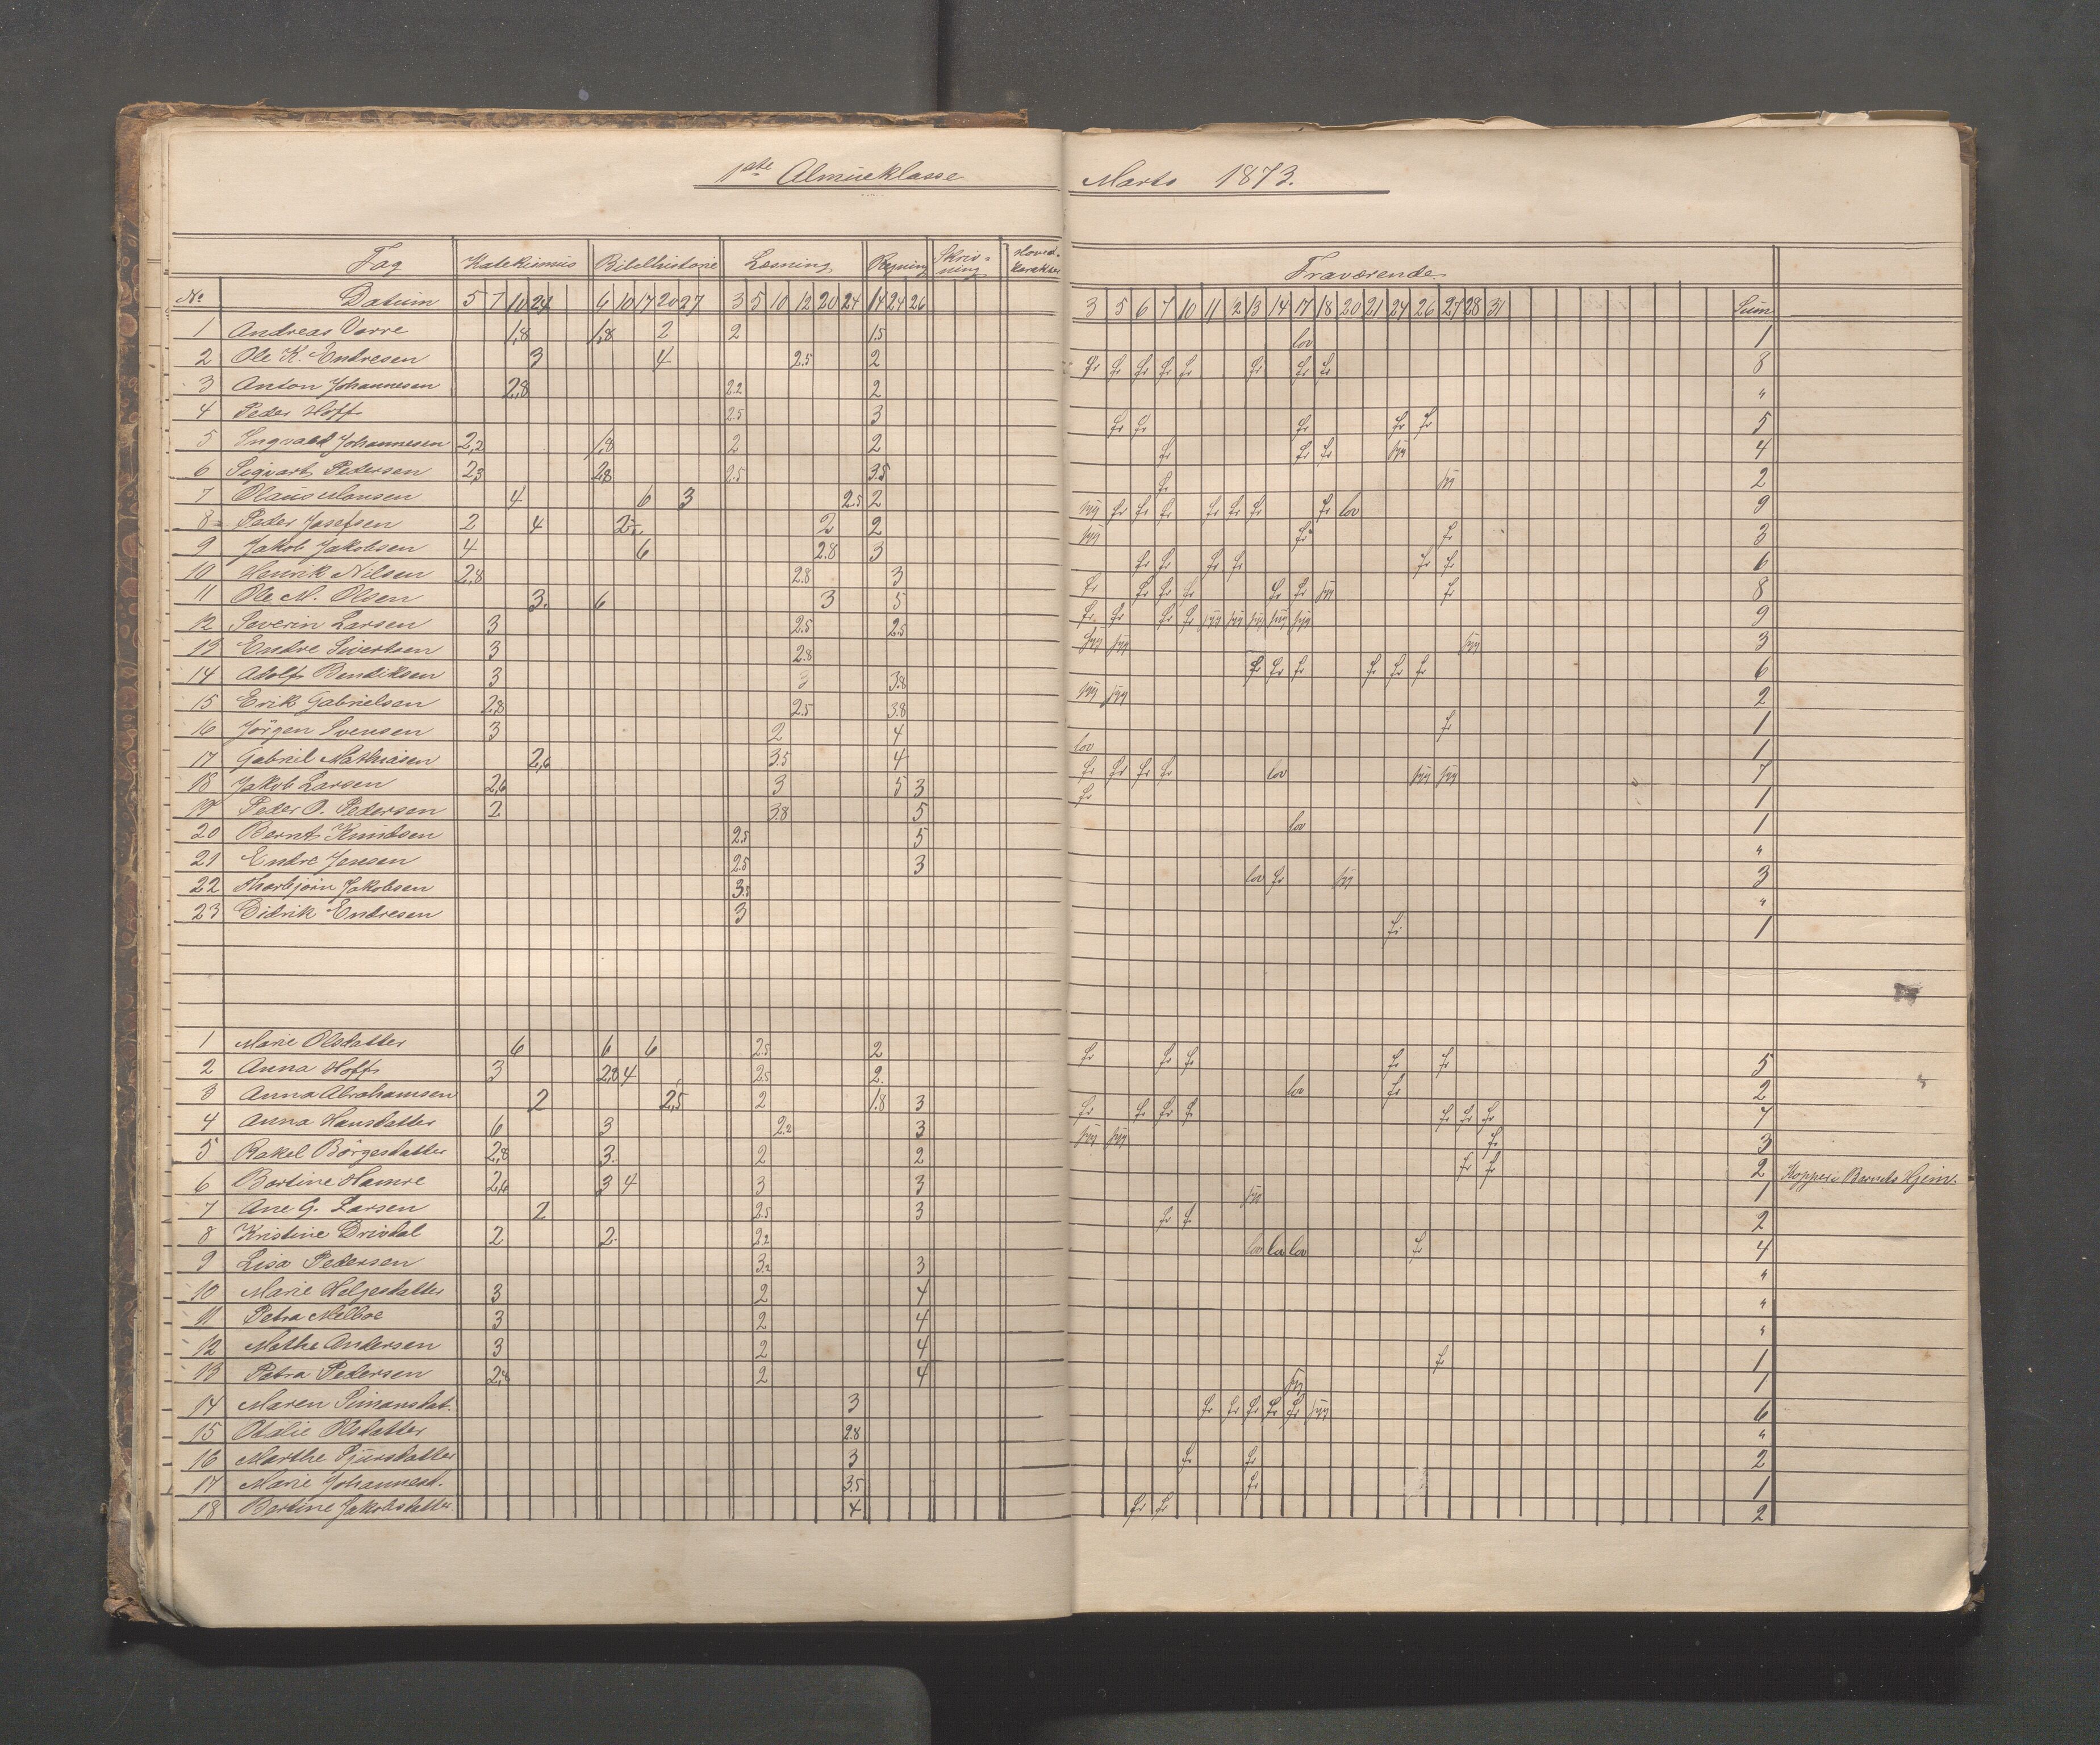 1ste Almueklasse
Marts 1873.
Fag Katekismus Bibelhistorie Læsning Regning Skriv-ning Hoved-karakter
Fraværende
No Datum 5 7 10 24 6 10 17 20 27 3 5 10 12 20 24 14 24 26
3 5 6 7 10 11 12 13 14 17 18 20 21 24 26 27 28 31 Sum
1 Andreas Varre 1,8 1,8 2 2 1.5 lov 1
2 Ole K. Endresen 3 4 2.5 2 fr fr fr fr fr fr fr fr 8
3 Anton Johannesen 2,8 2.2 2 "
4 Peder Hoff 2.5 3 fr fr fr fr fr 5
5 Ingvald Johannesen 2,2 1,8 2 2 fr fr fr syg 4
6 Sigvart Petersen 2,3 2,8 2.5 3.5 fr syg 2
7 Olaus Monsen 4 6 3 2.5 2 syg fr fr fr fr fr fr fr lov 9
8 Peder Josefsen 2 4 2 2 syg fr fr 3
9 Jakob Jakobsen 4 6 2.8 3 fr fr fr fr fr fr 6
10 Henrik Nilsen 2,8 2.8 3 fr fr fr fr fr fr syg fr 8
11 Ole M. Olsen 3. 6 3 5 fr fr fr fr syg syg syg syg syg 9
12 Severin Larsen 3 2.5 2.5 syg syg syg 3
13 Endre Sivertsen 3 2.8 fr fr fr fr fr fr 6
14 Adolf Bendiksen 3 3 3.8 syg syg 2
15 Erik Gabrielsen 2,8 2.5 3.8 fr 1
16 Jörgen Svensen 3 2 4 lov 1
17 Gabriel Mathiasen 2,6 3.5 4 fr fr fr fr lov syg syg 7
18 Jakob Larsen 2,6 3 5 3 fr 1
19 Peder O. Pedersen 2 3.8 5 lov 1
20 Bernt Knudsen 2.5 5 "
21 Endre Jensen 2.5 3 lov fr syg 3
22 Thorbjørn Jakobsen 3.5 "
23 Didrik Endresen 3 fr 1
1 Marie Olsdatter 6 6 6 2.5 2 fr fr fr fr fr 5
2 Anna Hoff 3 2,8 4 2.5 2. lov fr 2
3 Anna Abrahamsen 2 2,5 2 1.8 3 fr fr fr fr fr fr fr 7
4 Anna Hansdatter 6 3 2.2 3 syg syg fr 3
5 Rakel Börgesdatter 2,8 3. 2 2 fr fr 2 Kopper i Barnets Hjem.
6 Bertine Hamre 2,6 3 4 3 3 syg 1
7 Ane G. Larsen 2 2.5 3 fr fr 2
8 Kristine Drivdal 2 2. 2.2 lov lov lov fr 4
9 Lisa Pedersen 3.2 3 "
10 Marie Helgesdatter 3 2 4 "
11 Petra Melboe 3 2 4 "
12 Mathe Andersen 3 2 4 fr 1
13 Petra Pedersen 2,8 2 4 syg 1
14 Maren Simonsdat. 3 fr fr fr fr fr syg 6
15 Otalie Olsdatter 2.8 "
16 Marthe Sjursdatter 3 fr fr 2
17 Marie Johannesd. 3.5 fr 1
18 Bertine Jakobsdatter 4 fr fr 2